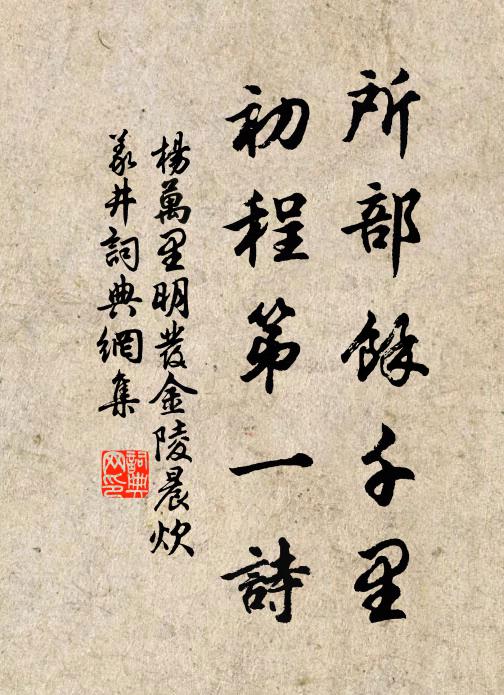 所部餘千里
初程第一詩
楊萬里明發金陵晨炊
義井詞典網集
詞典网印